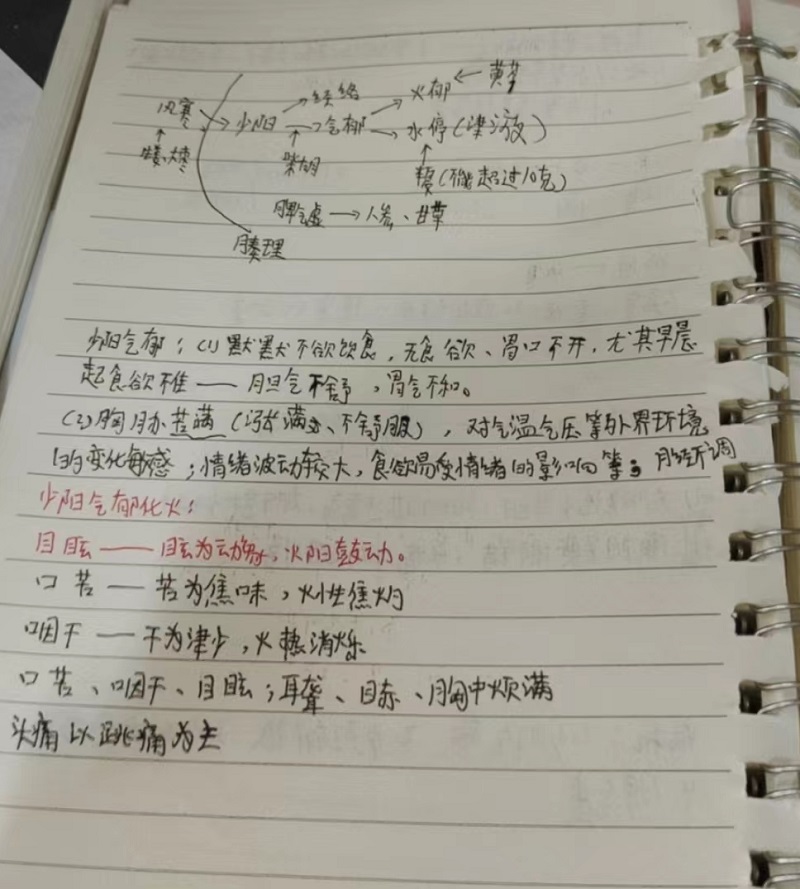 经络 火郁 ← 黄芩
风寒 → 少阳 → 气郁 → 水停(津液)
柴胡
(不能超过10克)
脾气虚 → 人参、甘草
腠理
少阳气郁:(1)默默不欲饮食,无食欲、胃口不开,尤其早晨
起食欲不佳——胆气不舒,胃气不和。
(2)胸胁苦满(胀满、不舒服),对气温气压等外界环境
的变化敏感;情绪波动较大,食欲易受情绪的影响等;月经不调
少阳气郁化火:
目眩——眩为动象,火阳鼓动。
口苦——苦为焦味,火性焦灼
咽干——干为津少,火热消烁
口苦、咽干、目眩;耳聋、目赤、胸中烦满
头痛以跳痛为主